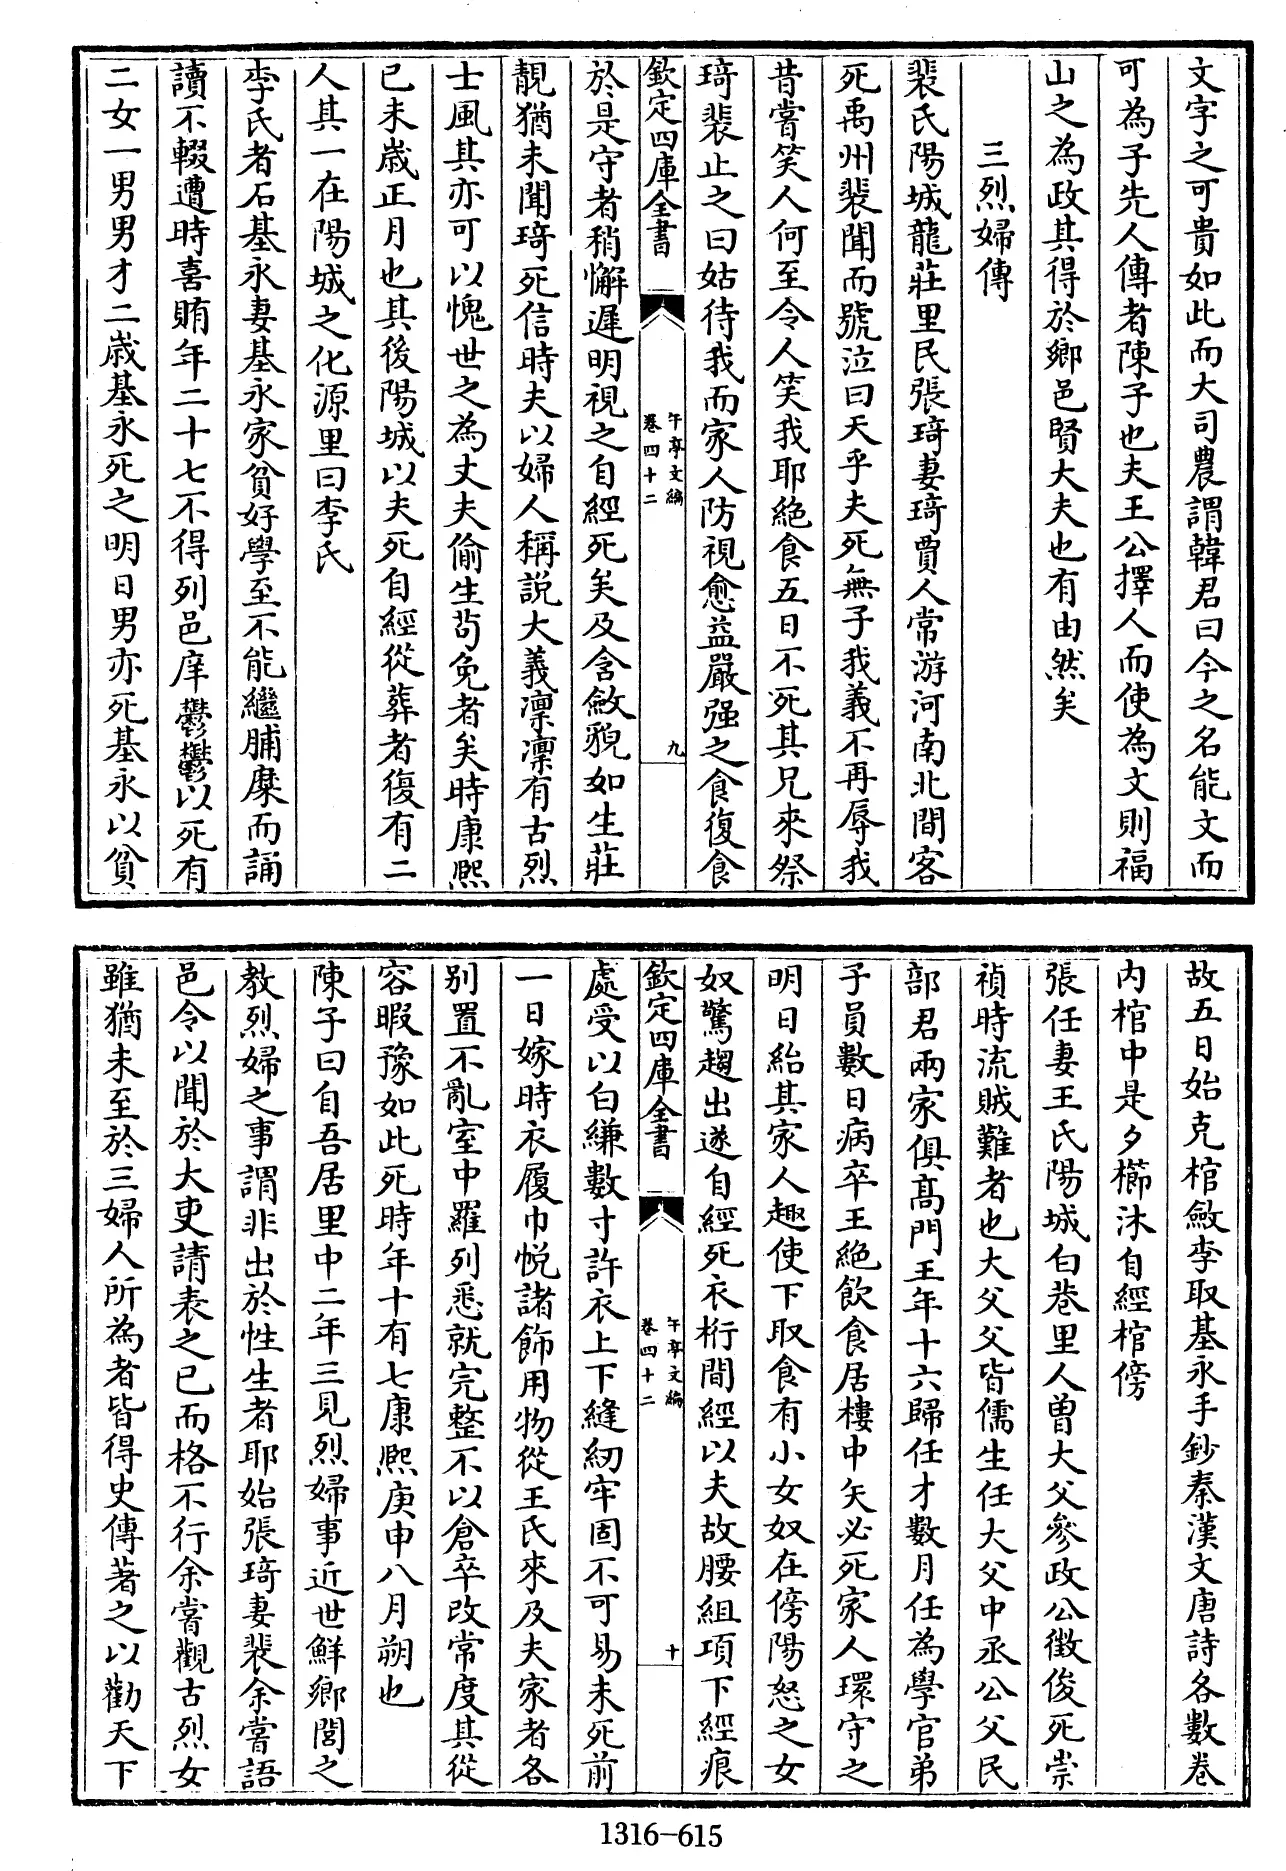 文字之可貴如此而大司農謂韓君曰今之名能文而
可為子先人傳者陳子也夫王公擇人而使為文則福
山之為政其得於鄉邑賢大夫也有由然矣
三烈婦傳
裴氏陽城龍莊里民張琦妻琦賈人常游河南北間客
死禹州裴聞而號泣曰天乎夫死無子我義不再辱我
昔嘗笑人何至令人笑我耶絶食五日不死其兄來祭
琦裴止之曰姑待我而家人防視愈益嚴强之食復食
欽定四庫全書
午亭文編
卷四十二
九
於是守者稍懈遲明視之自經死矣及含斂貌如生莊
靚猶未聞琦死信時夫以婦人稱説大義凛凛有古烈
士風其亦可以愧世之為丈夫偷生苟免者矣時康熙
已未歳正月也其後陽城以夫死自經從葬者復有二
人其一在陽城之化源里曰李氏
李氏者石基永妻基永家貧好學至不能繼脯糜而誦
讀不輟遭時喜賄年二十七不得列邑庠鬱鬱以死有
二女一男男才二歳基永死之明日男亦死基永以貧
故五日始克棺斂李取基永手鈔秦漢文唐詩各數卷
内棺中是夕櫛沐自經棺傍
張任妻王氏陽城白巷里人曾大父參政公徵俊死崇
禎時流賊難者也大父父皆儒生任大父中丞公父民
部君兩家俱髙門王年十六歸任才數月任為學官弟
子員數日病卒王絶飲食居樓中矢必死家人環守之
明日紿其家人趣使下取食有小女奴在傍陽怒之女
奴驚趨出遂自經死衣桁間經以夫故腰組項下經痕
欽定四庫全書
午亭文編
卷四十二
十
處受以白縑數寸許衣上下縫紉牢固不可易未死前
一日嫁時衣履巾帨諸飾用物從王氏來及夫家者各
别置不亂室中羅列悉就完整不以倉卒改常度其從
容暇豫如此死時年十有七康熙庚申八月朔也
陳子曰自吾居里中二年三見烈婦事近世鮮鄉閭之
教烈婦之事謂非出於性生者耶始張琦妻裴余嘗語
邑令以聞於大吏請表之已而格不行余嘗觀古烈女
雖猶未至於三婦人所為者皆得史傳著之以勸天下
1316-615